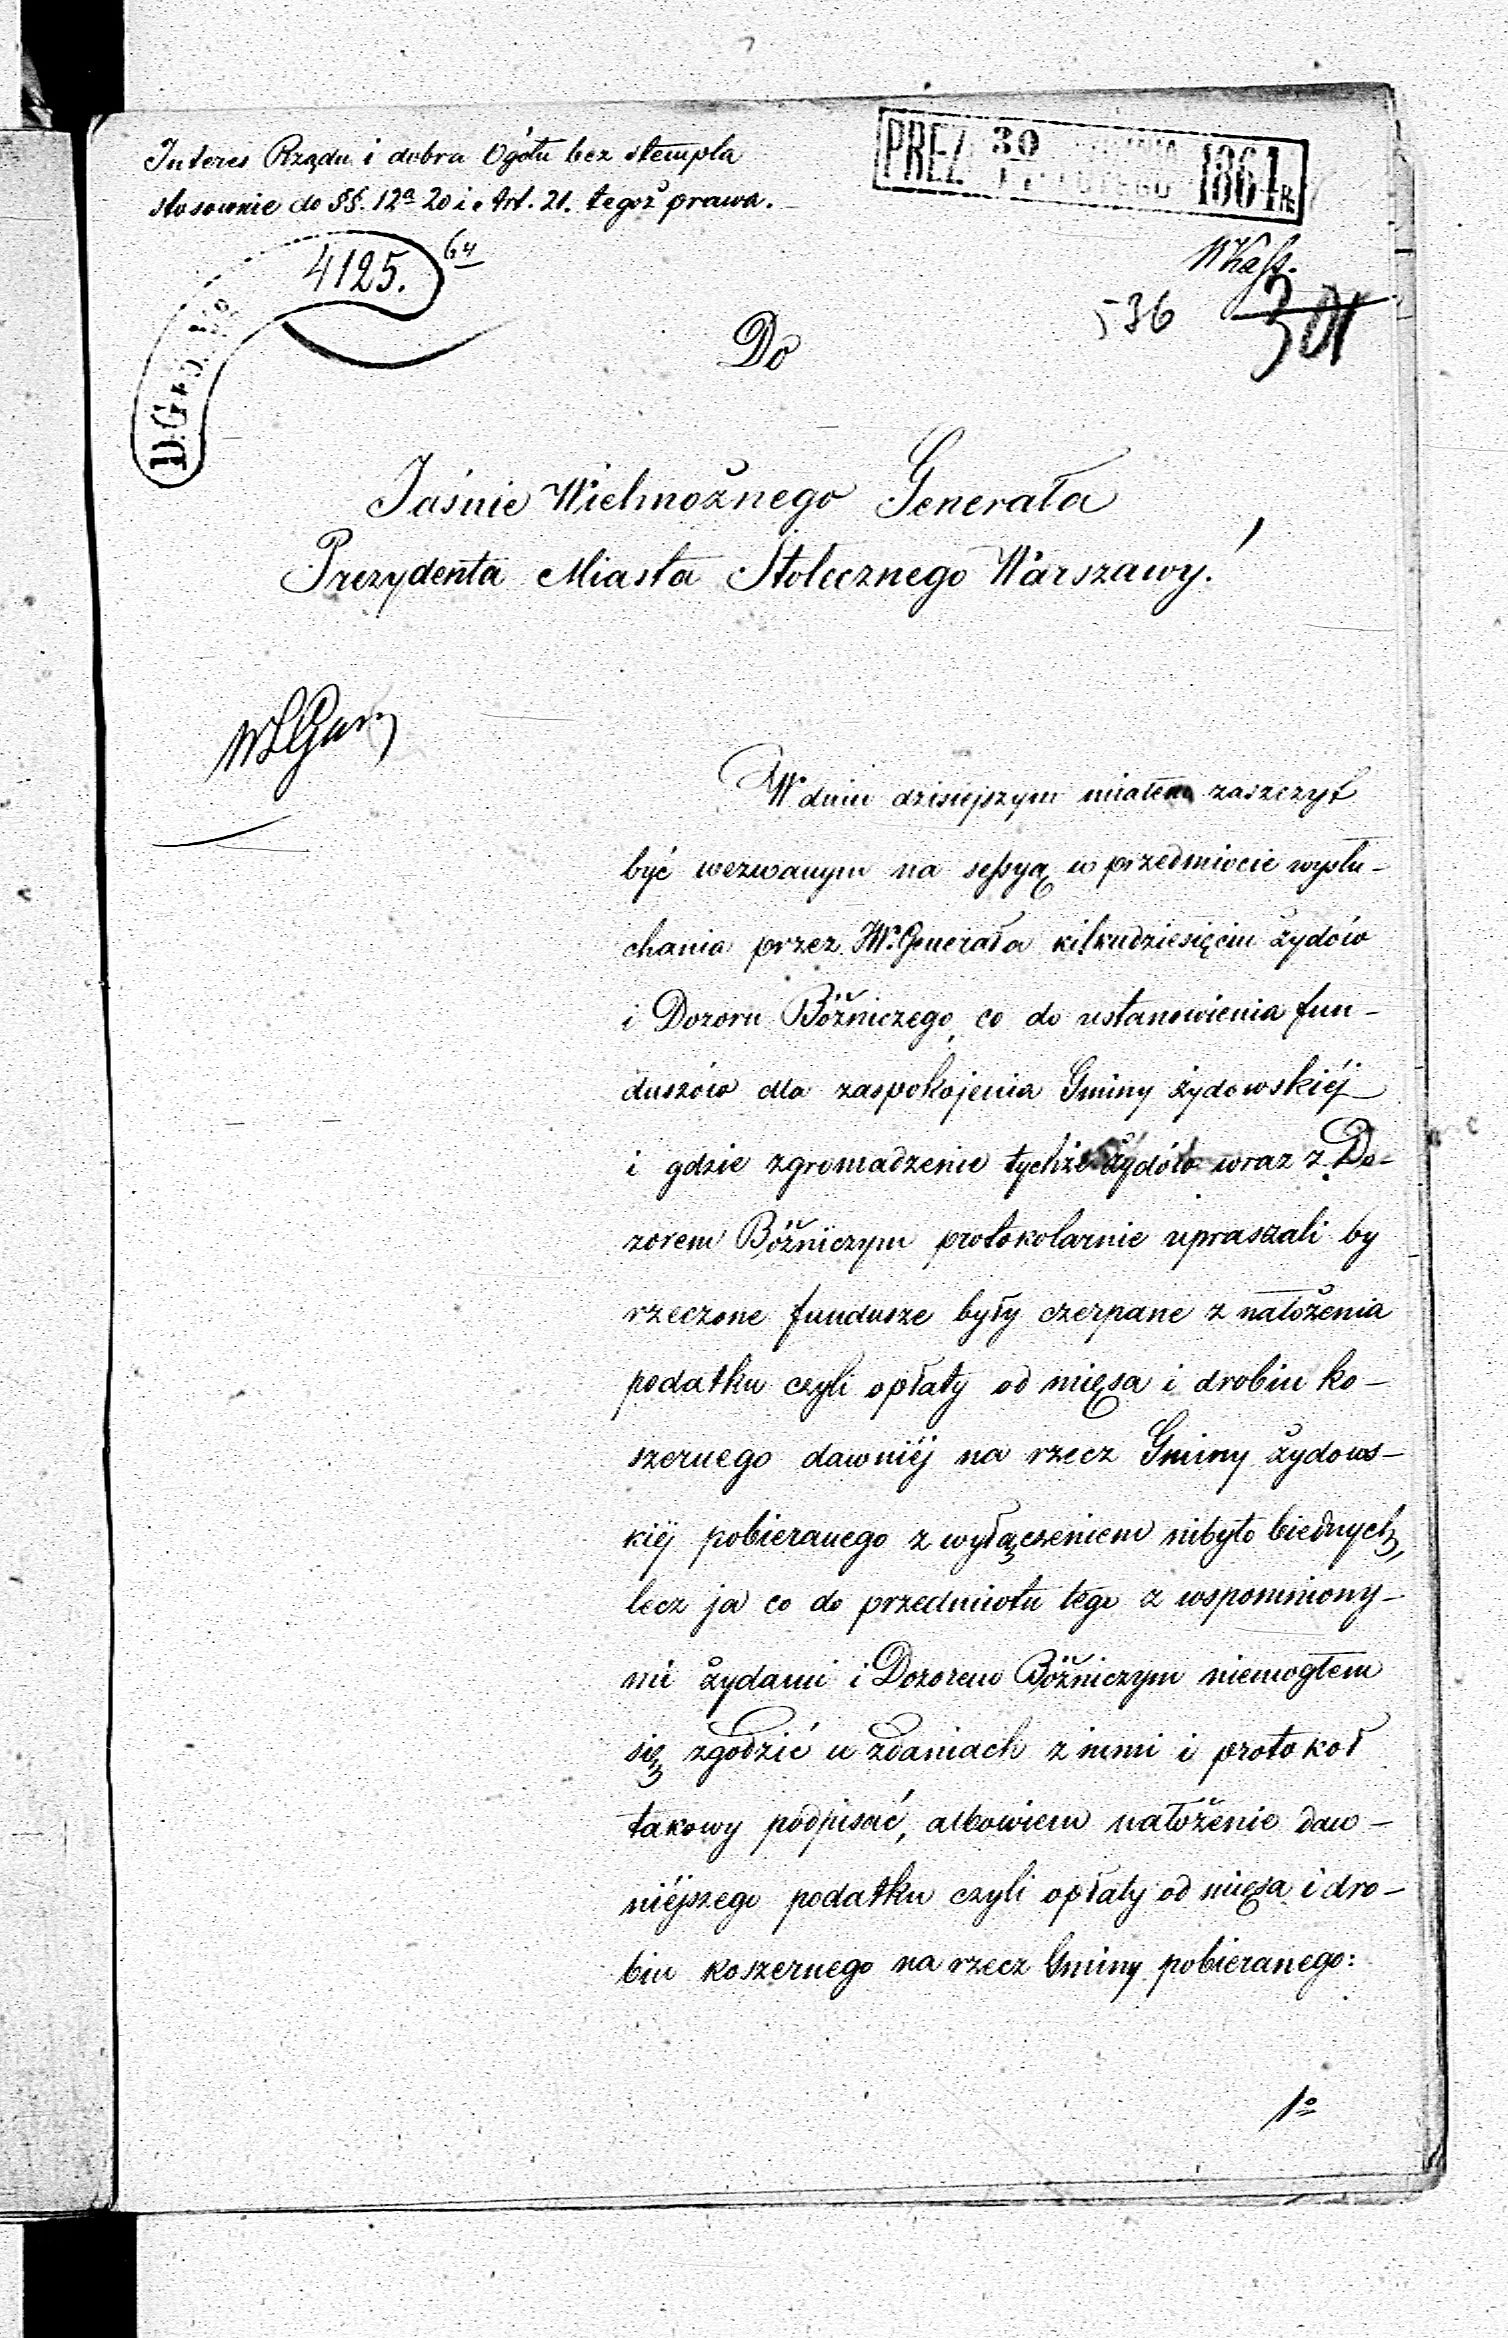 Interes Rządu i dobra Ogółu bez stempla
stosownie do §§. 12ª 20 i Art. 21. tegoż prawa.
PREZ 30 1864 R.
4125. 64
D.G. No
536 301
Do
Jaśnie Wielmożnego Generała
Prezydenta Miasta Stołecznego Warszawy!
W dniu dzisiejszym miałem zaszczyt
być wezwanym na sessyą w przedmiocie wysłu-
chania przez JW. Generała kilkudziesięciu żydów
i Dozoru Bóżniczego, co do ustanowienia fun-
duszów dla zaspokojenia Gminy żydowskiéj
i gdzie zgromadzenie tychże żydów wraz z Do-
zorem Bóżniczym protokolarnie upraszali by
rzeczone fundusze były czerpane z nałożenia
podatku czyli opłaty od mięsa i drobiu ko-
szernego dawniéj na rzecz Gminy żydows-
kiéj pobieranego z wyłączeniem nibyto biednych,
lecz ja co do przedmiotu tego z wspomniony-
mi żydami i Dozorem Bóżniczym niemogłem
się zgodzić w zdaniach z nimi i protokoł
takowy podpisać, albowiem nałożenie daw-
niéjszego podatku czyli opłaty od mięsa i dro-
biu koszernego na rzecz Gminy pobieranego:
1º